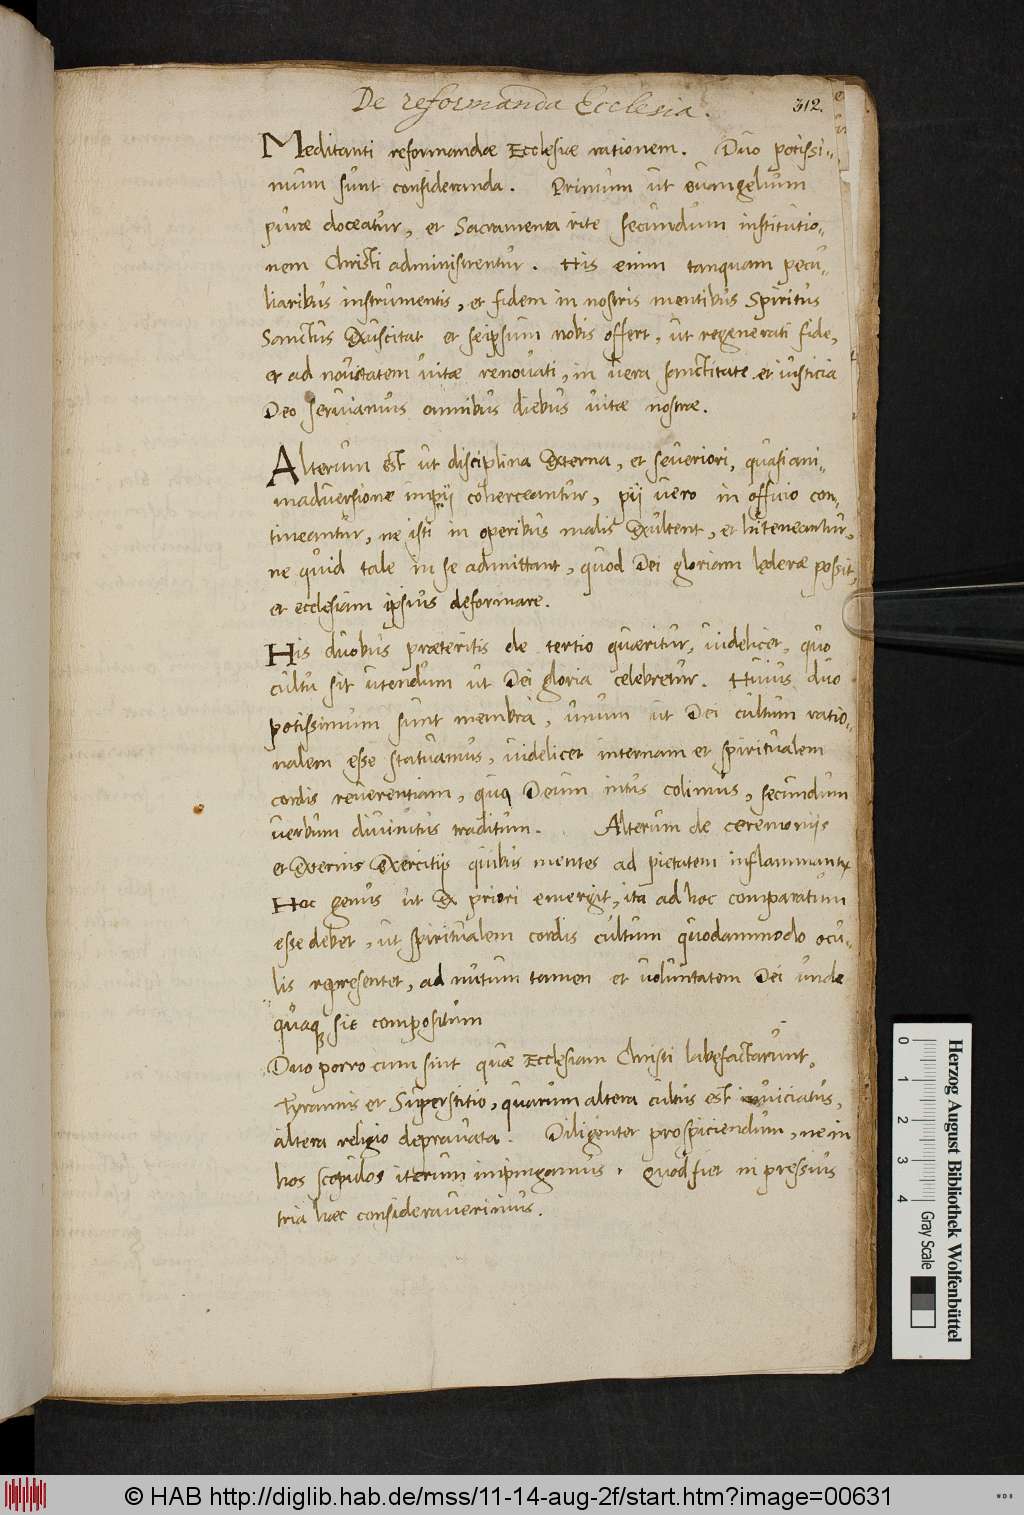 De reformanda Ecclesia.
312.
Meditanti reformandæ Ecclesiæ rationem. Duo potissi-
mum sunt consideranda. Primum ut euangelium
puræ doceatur, et Sacramenta rite secundum institutio-
nem Christi administrentur. His enim tanquam pecu-
liaribus instrumentis, et fidem in nostris mentibus Spiritus
Sanctus exuscitat et seipsum nobis offert, ut regenerati fide,
et ad nouitatem uitæ renouati, in uera sanctitate et iusticia
Deo seruiamus omnibus diebus uitæ nostræ.
Alterum est ut disciplina externa, et seueriori, quasi ani-
maduersione impij coherceantur, pij uero in officio con-
tineantur, ne isti in operibus malis exultent, et hi teneantur,
ne quid tale in se admittant, quod Dei gloriam lęderæ possit,
et ecclesiam ipsius deformare.
His duobus præteritis de tertio quæritur, uidelicet, quo
cultu sit utendum ut Dei gloria celebretur. Huius duo
potissimum sunt membra, unum ut Dei cultum ratio-
nalem esse statuamus, uidelicet internam et spiritualem
cordis reuerentiam, qua Deum intus colimus, secundum
uerbum diuinitus traditum. Alterum de ceremoniis
et externis exercitijs quibus mentes ad pietatem inflammantur
Hoc genus ut ex priori emergit, ita ad hoc comparatum
esse debet, ut spiritualem cordis cultum quodammodo ocu-
lis repręsentet, ad nutum tamen et uoluntatem Dei unde
quaq sit compositum
Duo porro cum sint quæ Ecclęsiam Christi labefactarunt,
Tyrannis et Superstitio, quarum altera cultus est uiciatus,
altera religio deprauata. Diligenter prospiciendum, ne in
hos scopulos iterum impingamus. Quod fiet ni pressius
tria hæc considerauerimus.
Herzog August Bibliothek Wolfenbüttel
0 1 2 3 4 Gray Scale
© HAB http://diglib.hab.de/mss/11-14-aug-2f/start.htm?image=00631